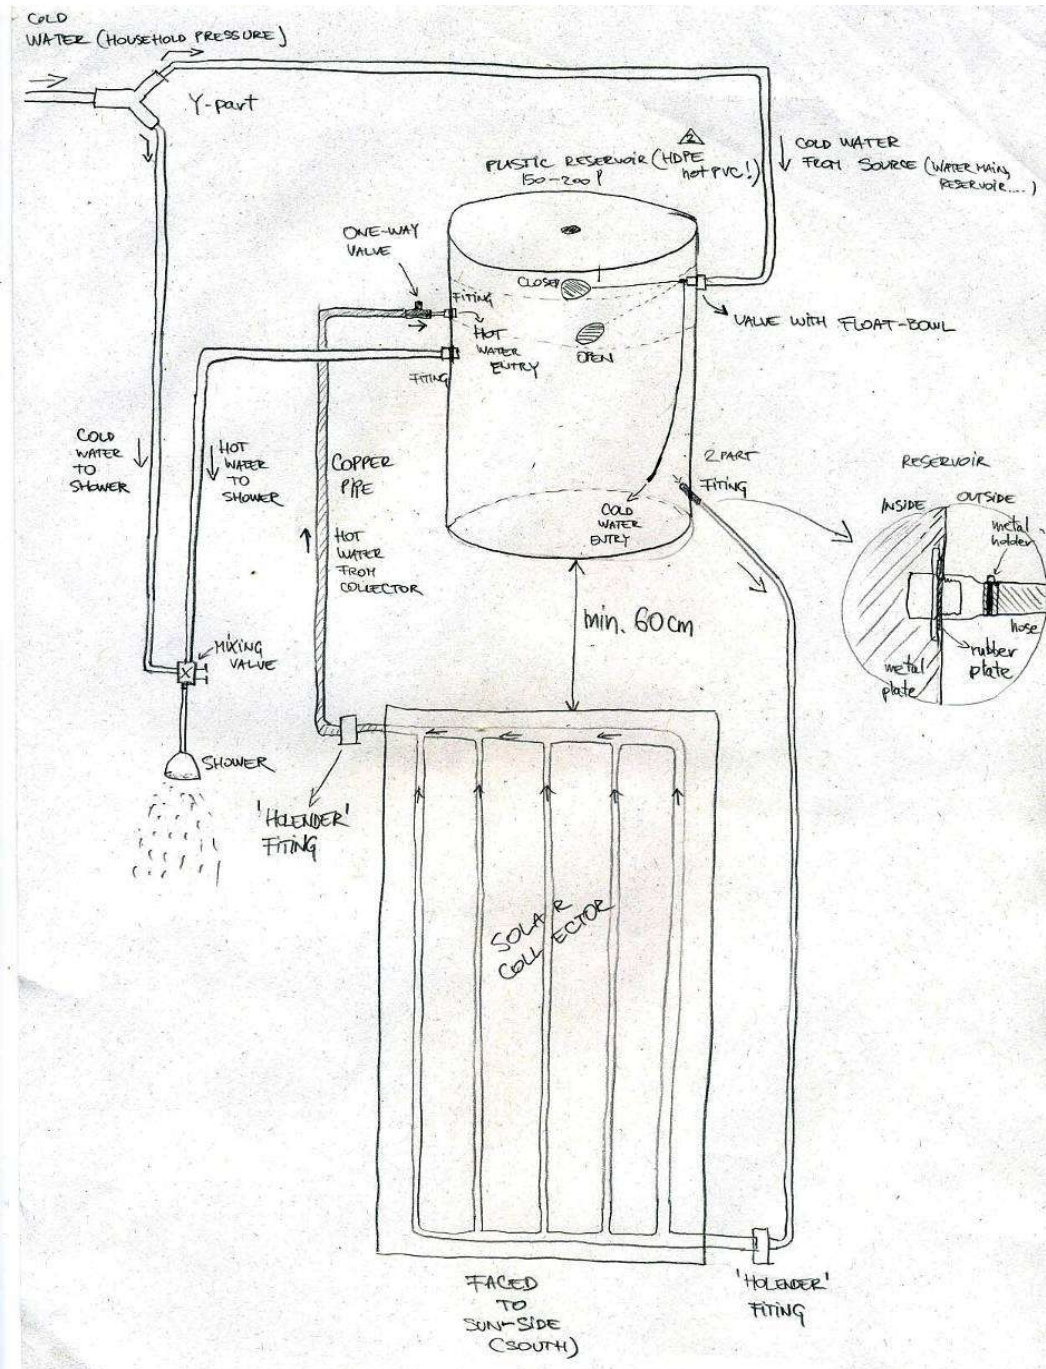 COLD
WATER (HOUSEHOLD PRESSURE)
Y-part
2
PLASTIC RESERVOIR (HDPE
not PVC!)
150-200 l
COLD WATER
FROM SOURCE (WATER MAIN,
RESERVOIR....)
ONE-WAY
VALVE
CLOSED
FITING
HOT
WATER
ENTRY
OPEN
VALVE WITH FLOAT-BOWL
FITING
COLD
WATER
TO
SHOWER
HOT
WATER
TO
SHOWER
COPPER
PIPE
HOT
WATER
FROM
COLLECTOR
2 PART
FITING
COLD
WATER
ENTRY
RESERVOIR
INSIDE
OUTSIDE
metal
holder
hose
rubber
plate
metal
plate
min. 60cm
MIXING
VALVE
SHOWER
'HOLENDER'
FITING
SOLAR
COLLECTOR
'HOLENDER'
FITING
FACED
TO
SUN-SIDE
(SOUTH)